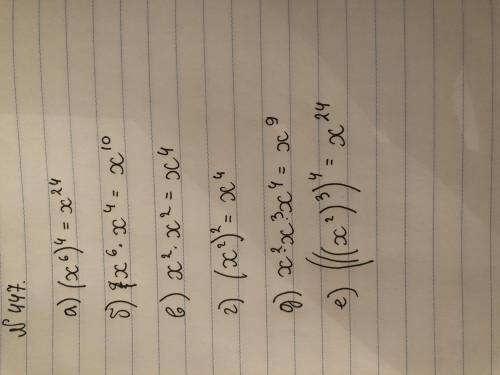 № 447.
а) (x⁶)⁴ = x²⁴
б) x⁶ · x⁴ = x¹⁰
в) x² · x² = x⁴
г) (x²)² = x⁴
д) x² · x³ · x⁴ = x⁹
е) (((x²)³)⁴ = x²⁴